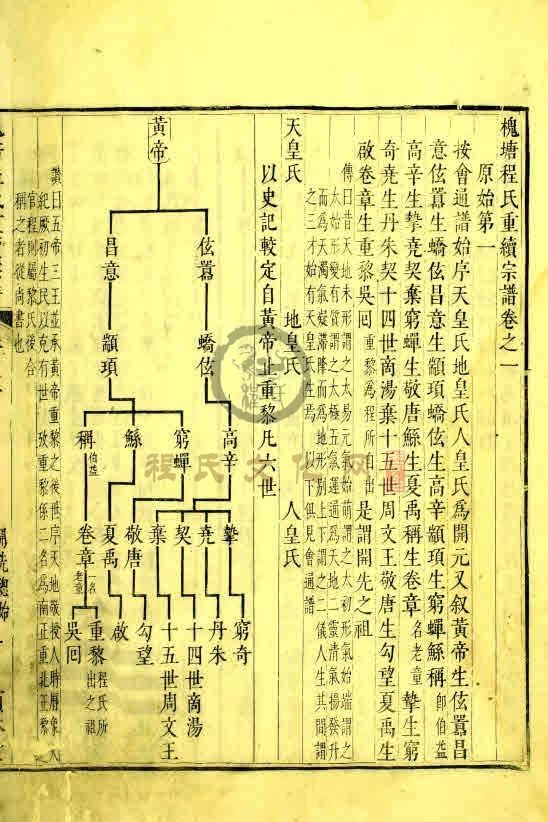 槐塘程氏重續宗譜卷之一
原始第一
按會通譜始序天皇氏地皇氏人皇氏為開元又叙黃帝生伭囂昌
意伭囂生蟜伭昌意生顓頊蟜伭生高辛顓頊生窮蟬鯀稱即伯益
高辛生摯堯契棄窮蟬生敬唐鯀生夏禹稱生卷章一名老童摯生窮
奇堯生丹朱契十四世商湯棄十五世周文王敬唐生勾望夏禹生
啟卷章生重黎吳回重黎為程所自出是謂開先之祖
傳曰昔天地未形謂之太易元氣始萌謂之太初形氣始端謂之
太始形變有質謂之太極五氣運通為天地之二靈清氣揚發升
而為天濁氣凝滯降而為地形別上下謂之二儀人生其間謂
之三才始有天皇氏生焉以下俱見會通譜
天皇氏 地皇氏 人皇氏
以史記較定自黃帝止重黎凡六世
黃帝
伭囂 昌意
蟜伭 顓頊
高辛 窮蟬 鯀 稱伯益
摯 堯 契 棄 敬唐 夏禹 卷章一名老童
窮奇 丹朱 十四世商湯 十五世周文王 勾望 啟 重黎程氏所出之祖 吳回
讚曰五帝三王並承黃帝重黎之後世序天地敬授人時曆象
紀厥初生民以克有世 致重黎係二名為南正重北正黎
官程則屬黎氏後合
稱之者從尚書也
程氏文化网